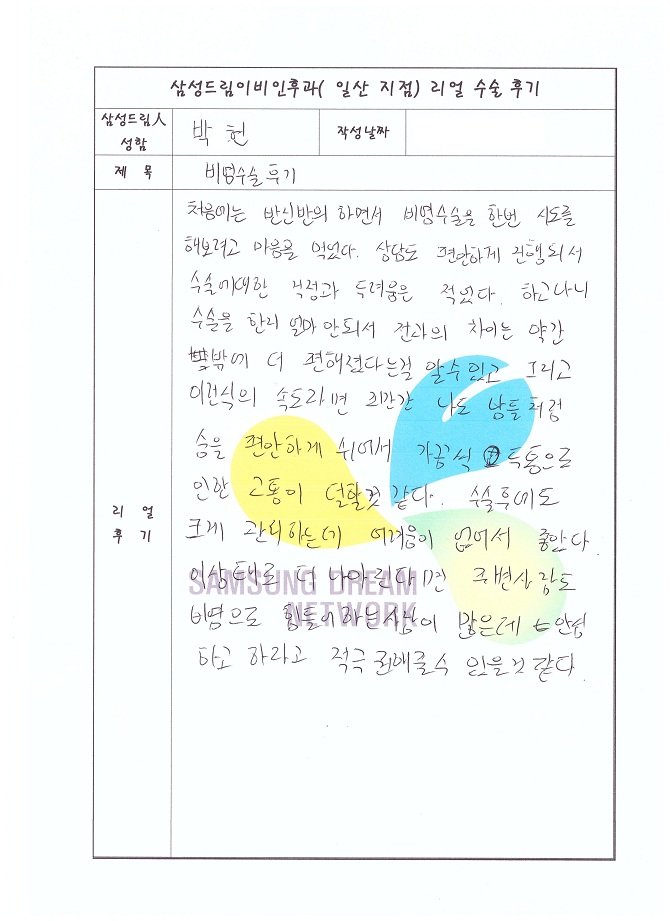 삼성드림이비인후과( 일산 지점) 리얼 수술 후기
삼성드림人 성함
박 헌
작성날짜
제 목
비염수술 후기
리 얼 후 기
처음에는 반신반의 하면서 비염수술을 한번 시도를
해보려고 마음을 먹었다. 상담도 편안하게 진행되서
수술에대한 걱정과 두려움은 적었다. 하고나니
수술을 한리 얼마 안되서 전과의 차이는 약간
밖에 더 편해졌다는걸 알수있고 그리고
이런식의 속도라면 죄만간 나도 남들처럼
숨을 편안하게 쉬어서 가끔씩 두통으로
인한 고통이 덜할것 같다. 수술후에도
크게 관리하는데 어려움이 없어서 좋았다
이상태로 더 나아린다면 주변사람도
비염으로 힘들어하는사람이 많은데 안심
하고 하라고 적극 권해줄수 있을것 같다
SAMSUNG DREAM
NETWORK